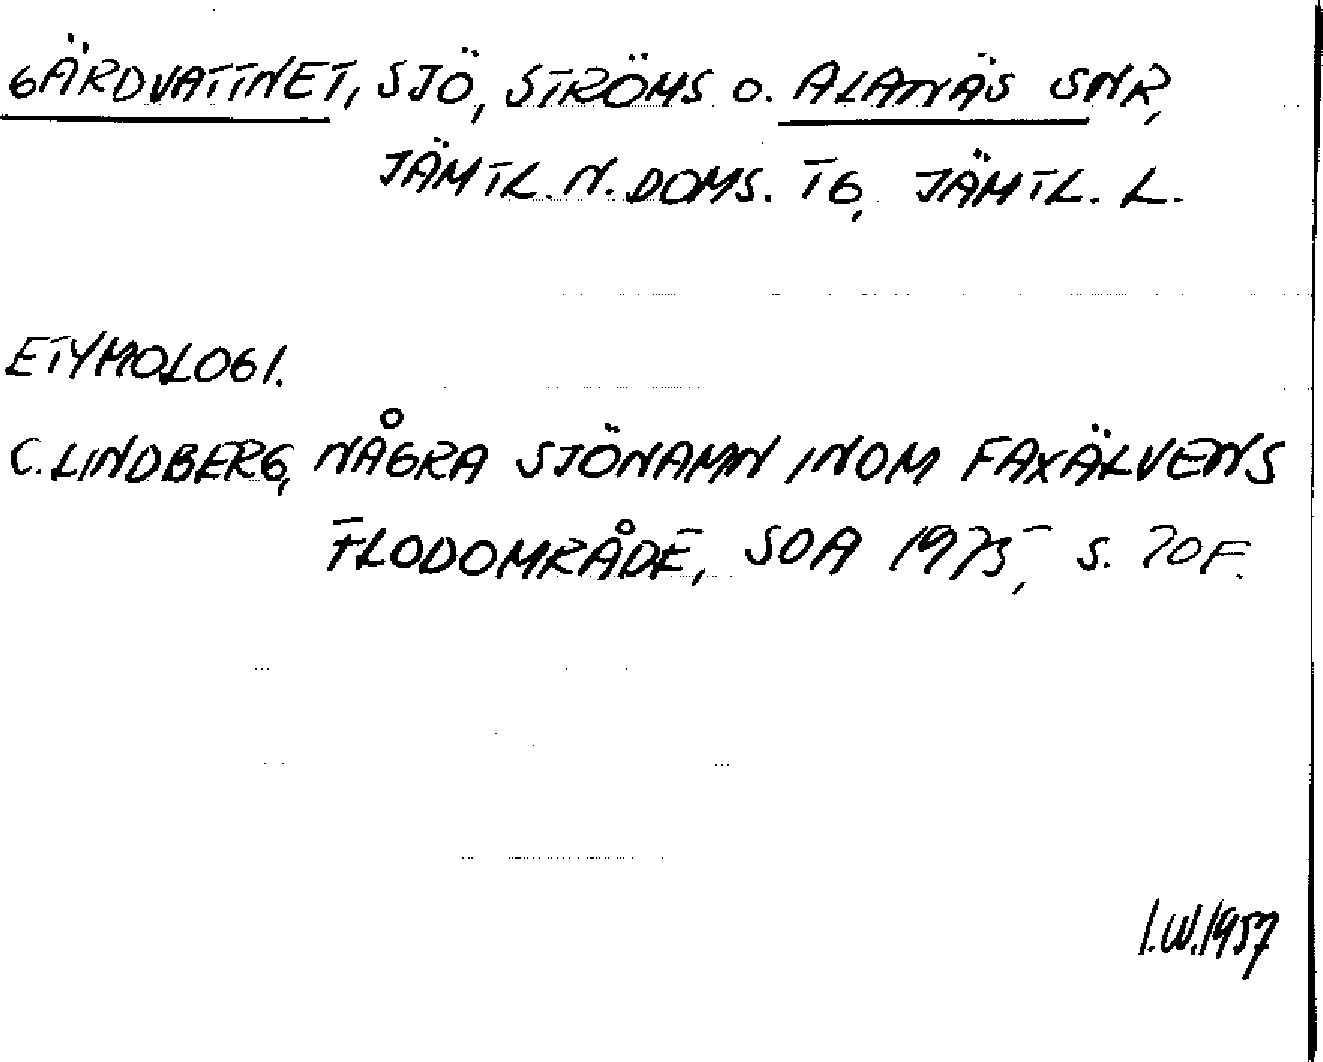 GÄRDVATTNET, SJÖ, STRÖMS O. ALANÄS SNR,
JÄMTL. N. DOMS. TG, JÄMTL. L.
ETYMOLOGI.
C. LINDBERG, NÅGRA SJÖNAMN INOM FAXÄLVENS
FLODOMRÅDE, SOA 1975, S. 70F.
I.W. 1957